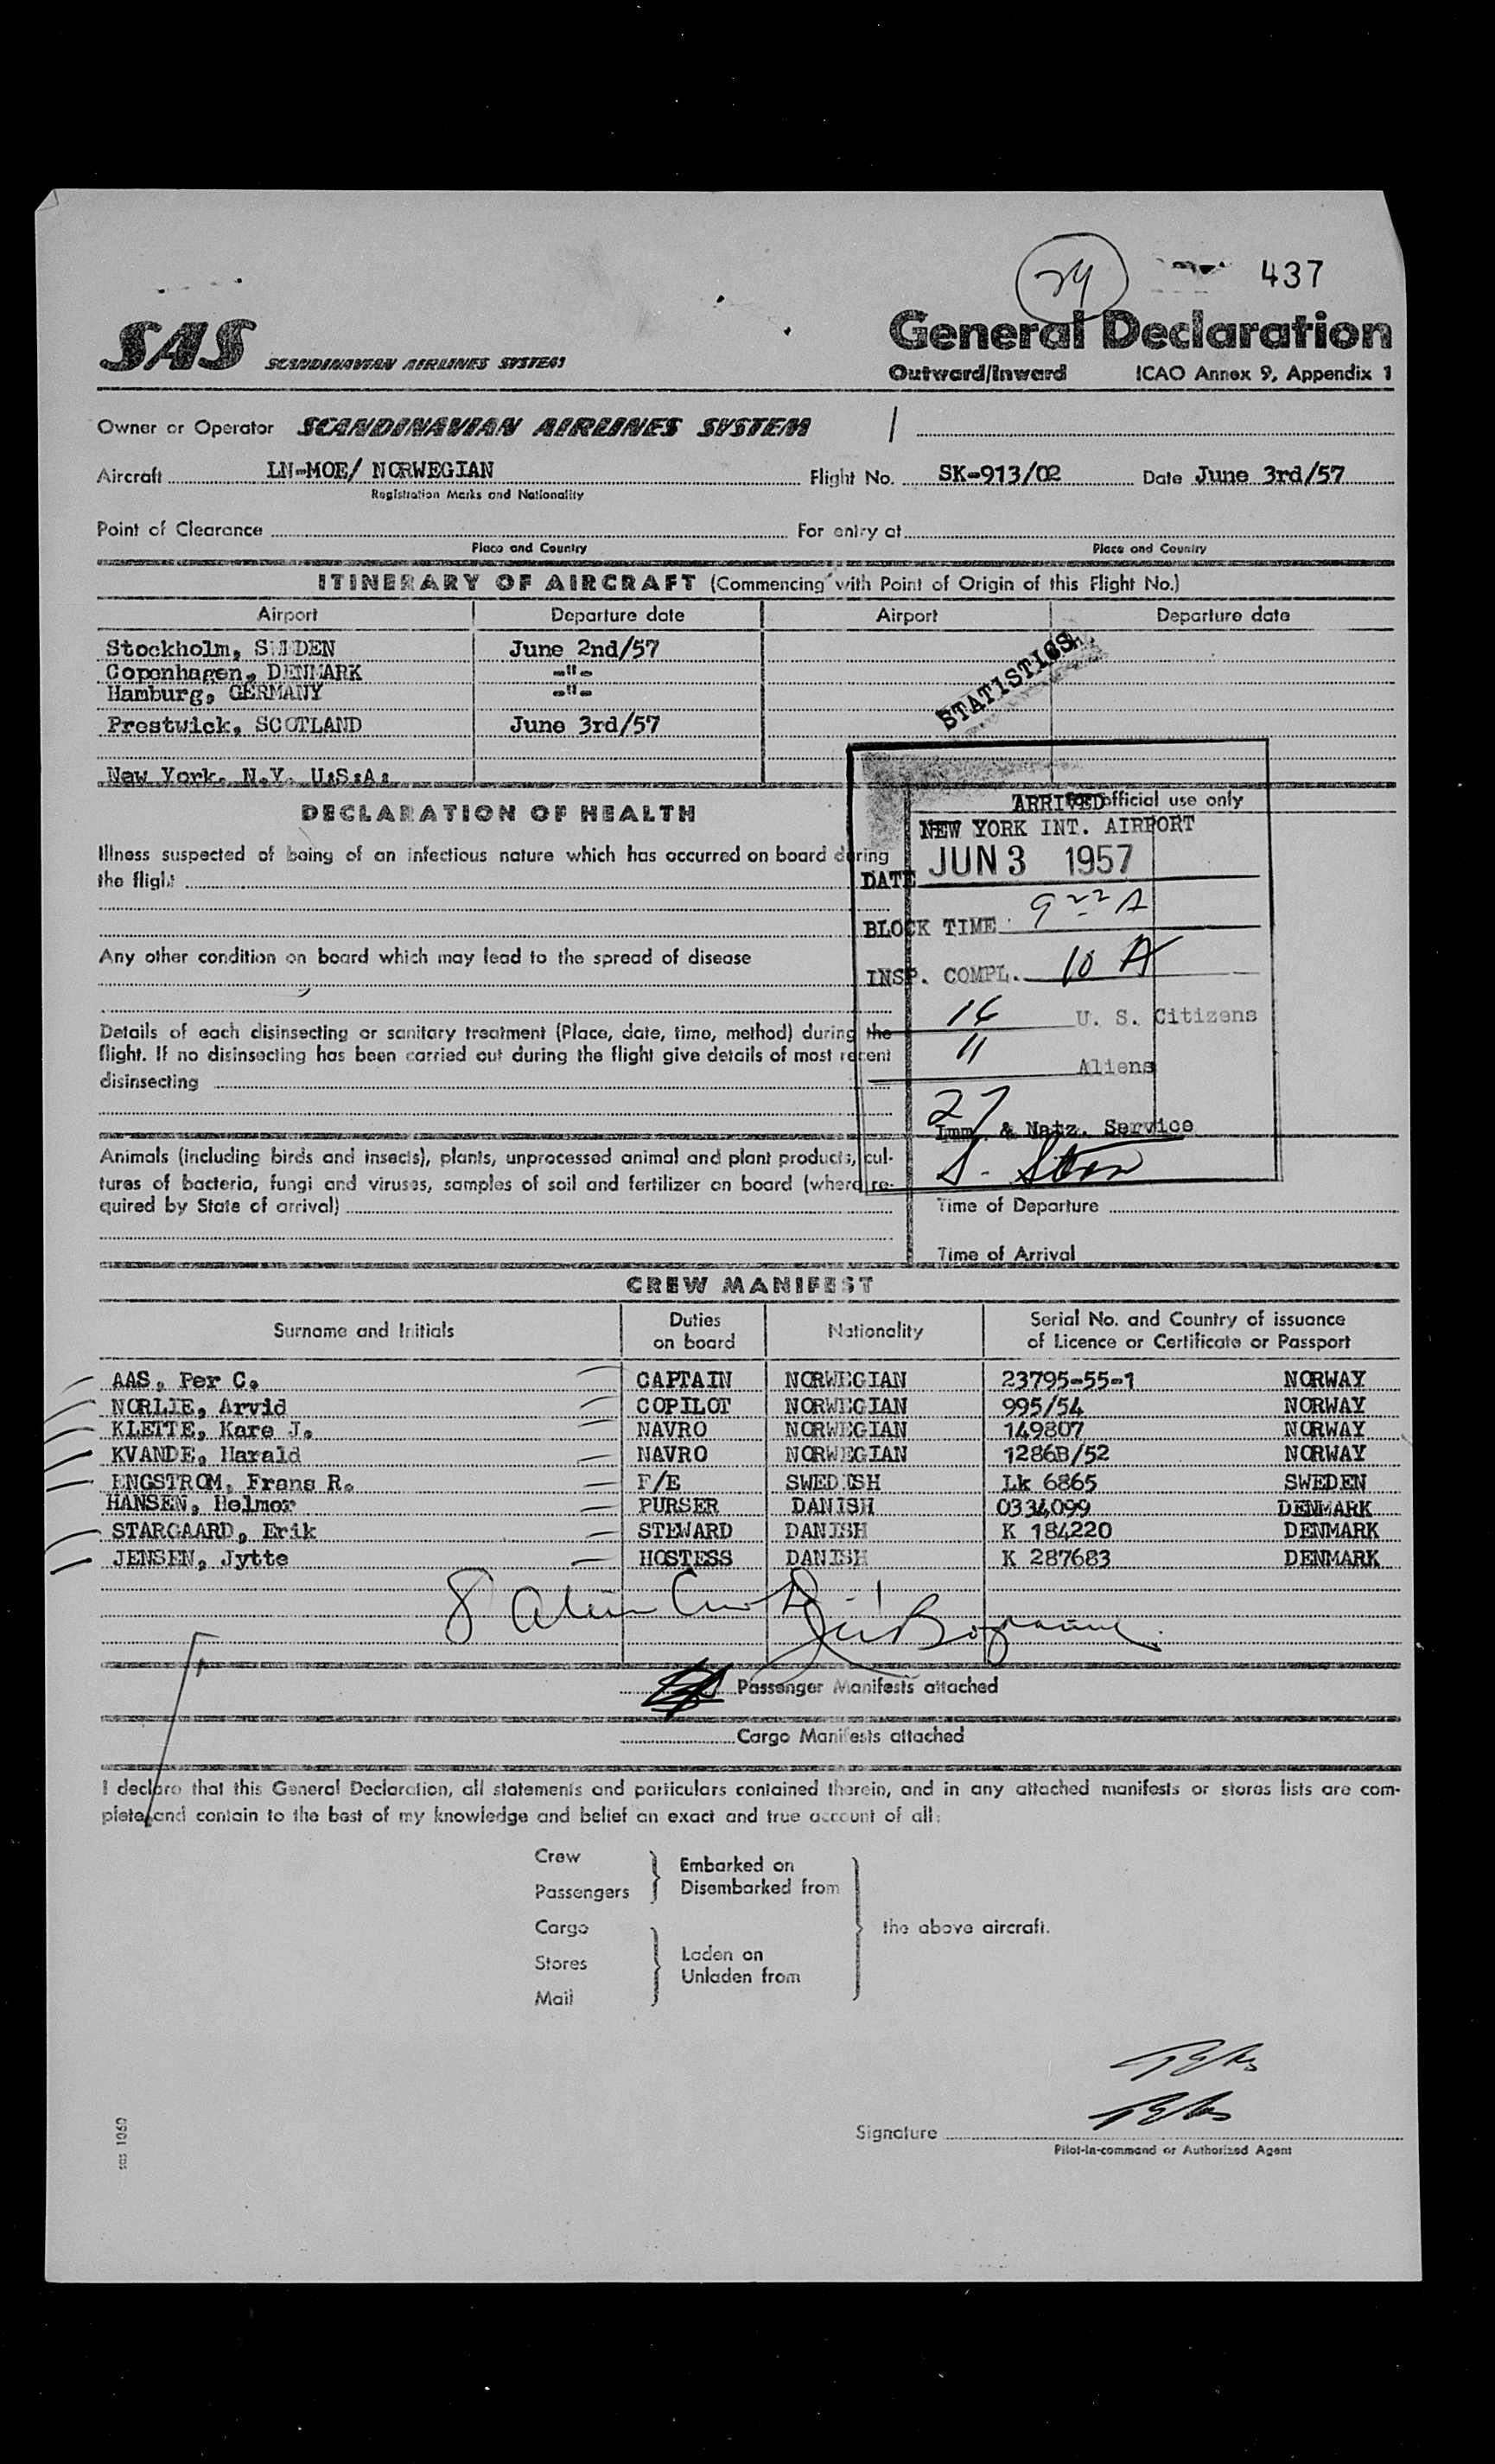 24 437
SAS SCANDINAVIAN AIRLINES SYSTEM
General Declaration
Outward/Inward ICAO Annex 9, Appendix 1
Owner or Operator SCANDINAVIAN AIRLINES SYSTEM
Aircraft LN-MOE/ NORWEGIAN Flight No. SK-913/02 Date June 3rd/57
Registration Marks and Nationality
Point of Clearance For entry at
Place and Country Place and Country
ITINERARY OF AIRCRAFT (Commencing with Point of Origin of this Flight No.)
Airport Departure date Airport Departure date
Stockholm, SWEDEN June 2nd/57
Copenhagen, DENMARK -"-
Hamburg, GERMANY -"-
Prestwick, SCOTLAND June 3rd/57
New York. N.Y. U.S.A.
STATISTICS
DECLARATION OF HEALTH
Illness suspected of being of an infectious nature which has occurred on board during
the flight
Any other condition on board which may lead to the spread of disease
Details of each disinsecting or sanitary treatment (Place, date, time, method) during the
flight. If no disinsecting has been carried out during the flight give details of most recent
disinsecting
Animals (including birds and insects), plants, unprocessed animal and plant products, cul-
tures of bacteria, fungi and viruses, samples of soil and fertilizer on board (where re-
quired by State of arrival)
For official use only
ARRIVED
NEW YORK INT. AIRPORT
DATE JUN 3 1957
BLOCK TIME 9 22 A
INSP. COMPL. 10 A
16 U. S. Citizens
11 Aliens
27
Imm. & Natz. Service
Time of Departure
Time of Arrival
CREW MANIFEST
Surname and Initials Duties on board Nationality Serial No. and Country of issuance of Licence or Certificate or Passport
AAS, Per C. CAPTAIN NORWEGIAN 23795-55-1 NORWAY
NORLIE, Arvid COPILOT NORWEGIAN 995/54 NORWAY
KLETTE, Kare J. NAVRO NORWEGIAN 149807 NORWAY
KVANDE, Harald NAVRO NORWEGIAN 1286B/52 NORWAY
ENGSTROM, Frans R. F/E SWEDISH Lk 6865 SWEDEN
HANSEN, Helmer PURSER DANISH 0334099 DENMARK
STARGAARD, Erik STEWARD DANISH K 184220 DENMARK
JENSEN, Jytte HOSTESS DANISH K 287683 DENMARK
8 Alien Crew
Passenger Manifests attached
Cargo Manifests attached
I declare that this General Declaration, all statements and particulars contained therein, and in any attached manifests or stores lists are com-
plete and contain to the best of my knowledge and belief an exact and true account of all:
Crew
Passengers
Embarked on
Disembarked from
Cargo
Stores
Mail
Laden on
Unladen from
the above aircraft.
Signature
Pilot-in-command or Authorized Agent
sas 1060